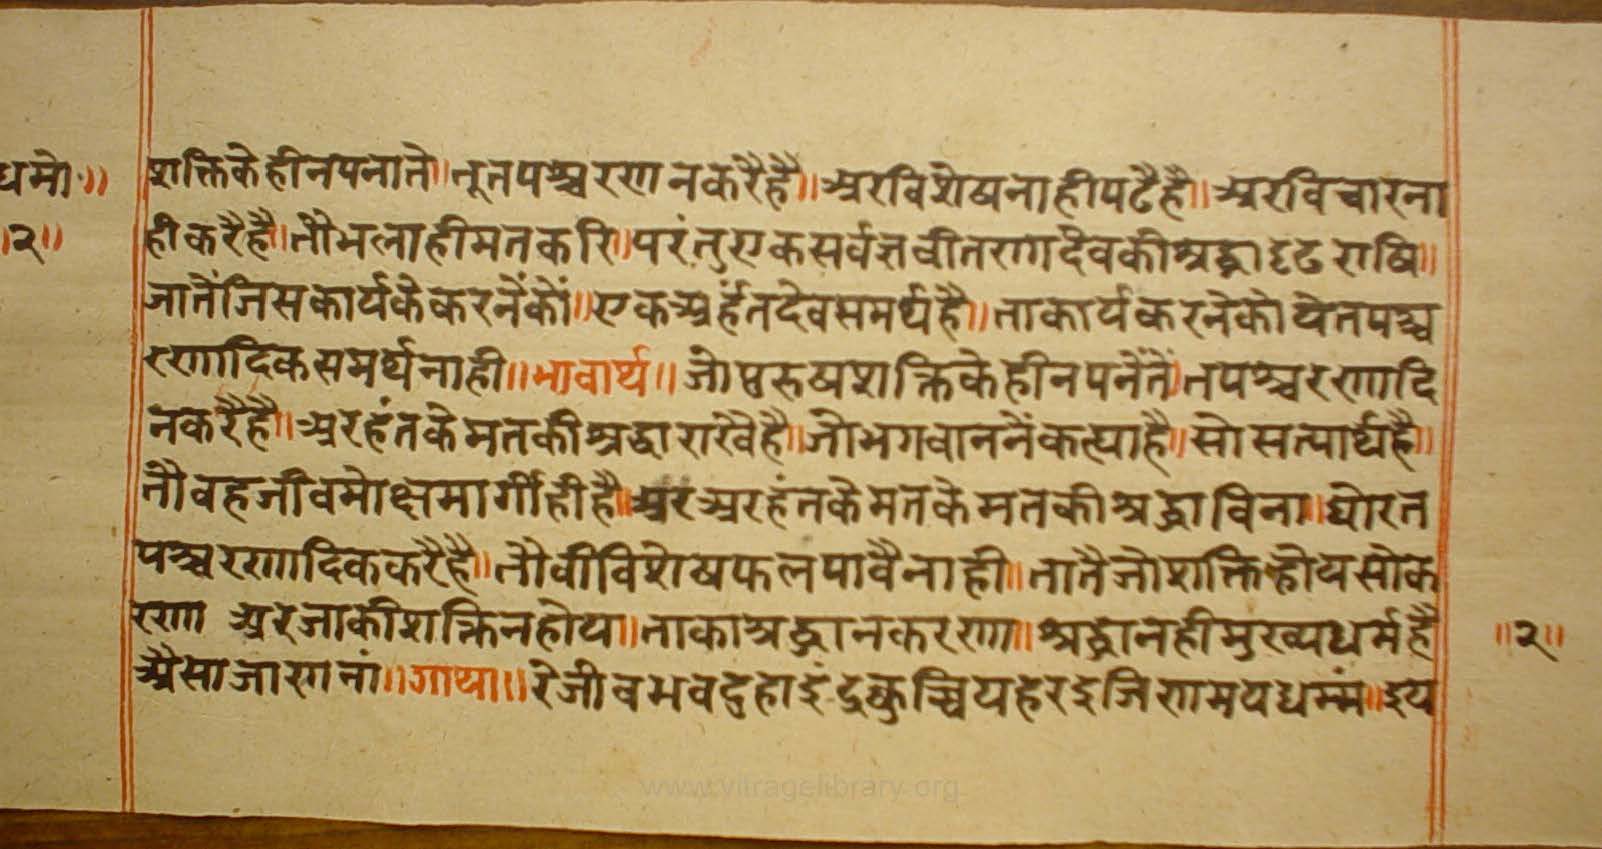 धर्मो॥
॥२॥
शक्तिके हीनपनाते॥ तू तपश्चरण न करैहै॥ अर विशेष नाही पढैहै॥ अर विचार ना
ही करैहै॥ तौ भला ही मत करि॥ परंतु एक सर्वज्ञ वीतराग देवकी श्रद्धा दृढ राषि॥
जातैं जिस कार्यके करनैंकौं॥ एक अर्हंतदेव समर्थ है॥ ता कार्य करनेको ये तपश्च
रणादिक समर्थ नाही॥ भावार्थ॥ जो पुरुष शक्तिके हीनपनैंतैं॥ तपश्चरणादि
न करैहै॥ अरहंतके मतकी श्रद्धा राखैहै॥ जो भगवाननैं कह्याहै॥ सो सत्यार्थहै॥
तौ वह जीव मोक्षमार्गी ही है॥ अर अरहंतके मतके मतकी श्रद्धा विना॥ घोर त
पश्चरणादिक करैहै॥ तौ वी विशेष फल पावै नाही॥ तातै जो शक्ति होय सो क
रणा अर जाकी शक्ति न होय॥ ताका श्रद्धान करणा॥ श्रद्धान ही मुख्य धर्म है
अैसा जाणनां॥ गाथा॥ रे जीव भवदुहाइं इक्कुच्चिय हरइ जिणमयधम्मं॥ इय
॥२॥
www.vitragelibrary.org